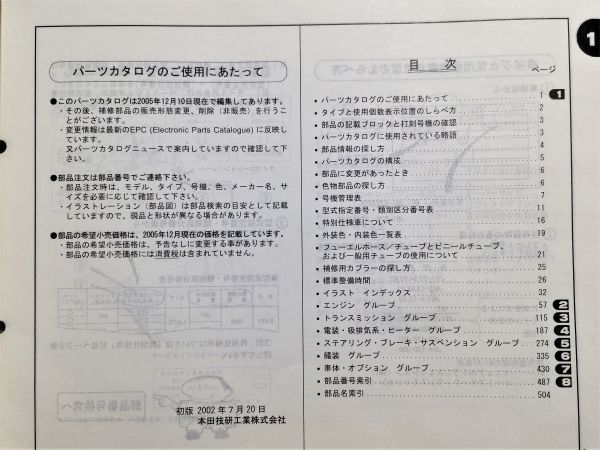 パーツカタログのご使用にあたって
●このパーツカタログは2005年12月10日現在で編集してあります。
・その後、補修部品の販売形態変更、削除（非販売）を行うことがございます。
・変更情報は最新のEPC (Electronic Parts Catalogue) に反映しています。
又パーツカタログニュースで案内していますので確認して下さい。
●部品注文は部品番号でご連絡下さい。
・部品注文時は、モデル、タイプ、号機、色、メーカー名、サイズを必要に応じて確認して下さい。
・イラストレーション（部品図）は部品検索の目安として記載していますので、現品と形状が異なる場合があります。
●部品の希望小売価格は、2005年12月現在の価格を記載しています。
・部品の希望小売価格は、予告なしに変更する事があります。
・部品の希望小売価格には消費税は含まれていません。
初版 2002年7月20日
本田技研工業株式会社
1
目 次
ページ
・パーツカタログのご使用にあたって 1 1
・タイプと使用個数表示位置のしらべ方 2
・部品の記載ブロックと打刻号機の確認 3
・パーツカタログに使用されている略語 3
・部品情報の探し方 4
・パーツカタログの構成 5
・部品に変更があったとき 6
・色物部品の探し方 6
・号機管理表 7
・型式指定番号・類別区分番号表 11
・特別仕様車について 16
・外装色・内装色一覧表 19
・フューエルホース／チューブとビニールチューブ、
および一般用チューブの使用について 21
・補修用カプラーの探し方 25
・標準整備時間 26
・イラスト インデックス 32
・エンジン グループ 57 2
・トランスミッション グループ 115 3
・電装・吸排気系・ヒーター グループ 187 4
・ステアリング・ブレーキ・サスペンション グループ 274 5
・艤装 グループ 335 6
・車体・オプション グループ 430 7
・部品番号索引 487 8
・部品名索引 504